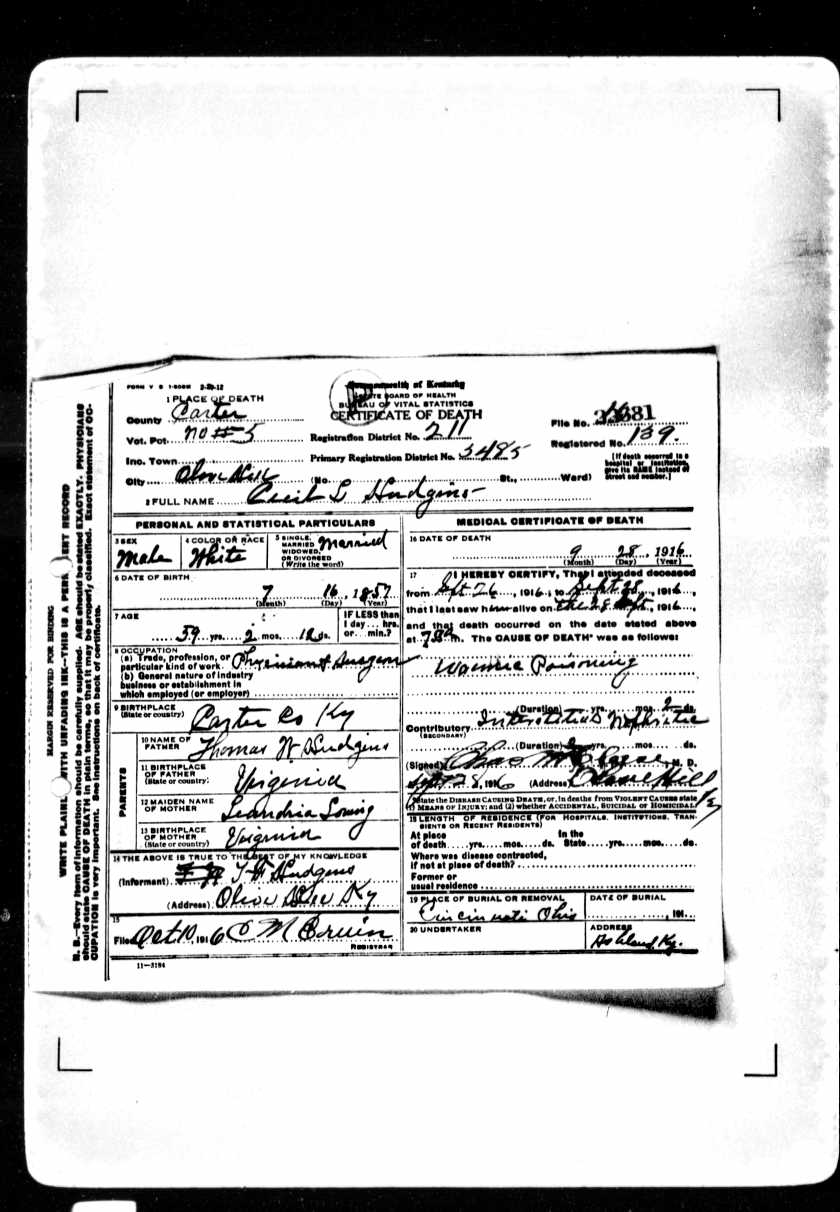 FORM V S 1-500M 2-20-12
Commonwealth of Kentucky
STATE BOARD OF HEALTH
BUREAU OF VITAL STATISTICS
CERTIFICATE OF DEATH
1 PLACE OF DEATH
County Carter
Vot. Pct. No # 5
Registration District No. 211
File No.
Inc. Town
Primary Registration District No. 5485
Registered No. 139.
[If death occurred in a hospital or institution, give its NAME instead of street and number.]
City Olive Hill (No. St., Ward)
2 FULL NAME Cecil L Hudgins
PERSONAL AND STATISTICAL PARTICULARS
3 SEX
Male
4 COLOR OR RACE
White
5 SINGLE, MARRIED WIDOWED, OR DIVORCED (Write the word)
Married
6 DATE OF BIRTH
7 16, 1857
(Month) (Day) (Year)
7 AGE
59 yrs. 2 mos. 12 ds.
IF LESS than 1 day... hrs. or... min.?
8 OCCUPATION
(a) Trade, profession, or particular kind of work Physician & Surgeon
(b) General nature of industry business or establishment in which employed (or employer)
9 BIRTHPLACE
(State or country) Carter Co Ky
PARENTS
10 NAME OF FATHER Thomas W Hudgins
11 BIRTHPLACE OF FATHER
(State or country) Virginia
12 MAIDEN NAME OF MOTHER Leandria
13 BIRTHPLACE OF MOTHER
(State or country) Virginia
14 THE ABOVE IS TRUE TO THE BEST OF MY KNOWLEDGE
(Informant) Hudgins
(Address) Olive Hill Ky
15
Filed Oct 10, 1916
REGISTRAR
11-3184
MEDICAL CERTIFICATE OF DEATH
16 DATE OF DEATH
9 28, 1916
(Month) (Day) (Year)
17 I HEREBY CERTIFY, That I attended deceased
from Sept 26, 1916, to Sept. 28, 1916,
that I last saw him alive on the 28 Sept, 1916,
and that death occurred on the date stated above
at m. The CAUSE OF DEATH* was as follows:
Uraemic Poisoning
(Duration) yrs. mos. 2 ds.
Contributory Interstitial Nephritis
(SECONDARY)
(Duration) yrs. mos. ds.
(Signed) Chas M. D.
Sept 28, 1916 (Address) Olive Hill Ky
*State the DISEASE CAUSING DEATH, or, in deaths from VIOLENT CAUSES state (1) MEANS OF INJURY; and (2) whether ACCIDENTAL, SUICIDAL or HOMICIDAL.
18 LENGTH OF RESIDENCE (FOR HOSPITALS, INSTITUTIONS, TRANSIENTS OR RECENT RESIDENTS)
At place of death yrs. mos. ds. In the State yrs. mos. ds.
Where was disease contracted, if not at place of death?
Former or usual residence
19 PLACE OF BURIAL OR REMOVAL
Cincinnati Ohio
DATE OF BURIAL
, 191
20 UNDERTAKER
ADDRESS
Ashland, Ky.
MARGIN RESERVED FOR BINDING
WRITE PLAINLY WITH UNFADING INK—THIS IS A PERMANENT RECORD
N. B.—Every item of information should be carefully supplied. AGE should be stated EXACTLY. PHYSICIANS
should state CAUSE OF DEATH in plain terms, so that it may be properly classified. Exact statement of OC-
CUPATION is very important. See instructions on back of certificate.